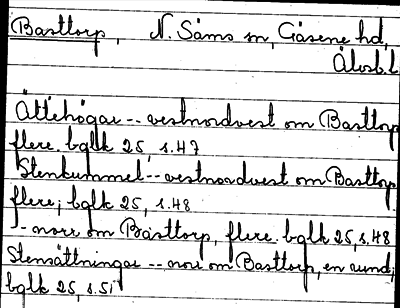 Basttorp, N. Säms sn, Gäsene hd,
Älvsb. l
Ättehögar -- vestnordvest om Basttorp
flere. bglk 25, s. 47
Stenkummel -- vestnordvest om Basttorp.
flere; bglk 25, s. 48
-- norr om Basttorp, flere. bglk 25, s. 48
Stensättningar -- norr om Basttorp, en rund;
bglk 25, s. 51